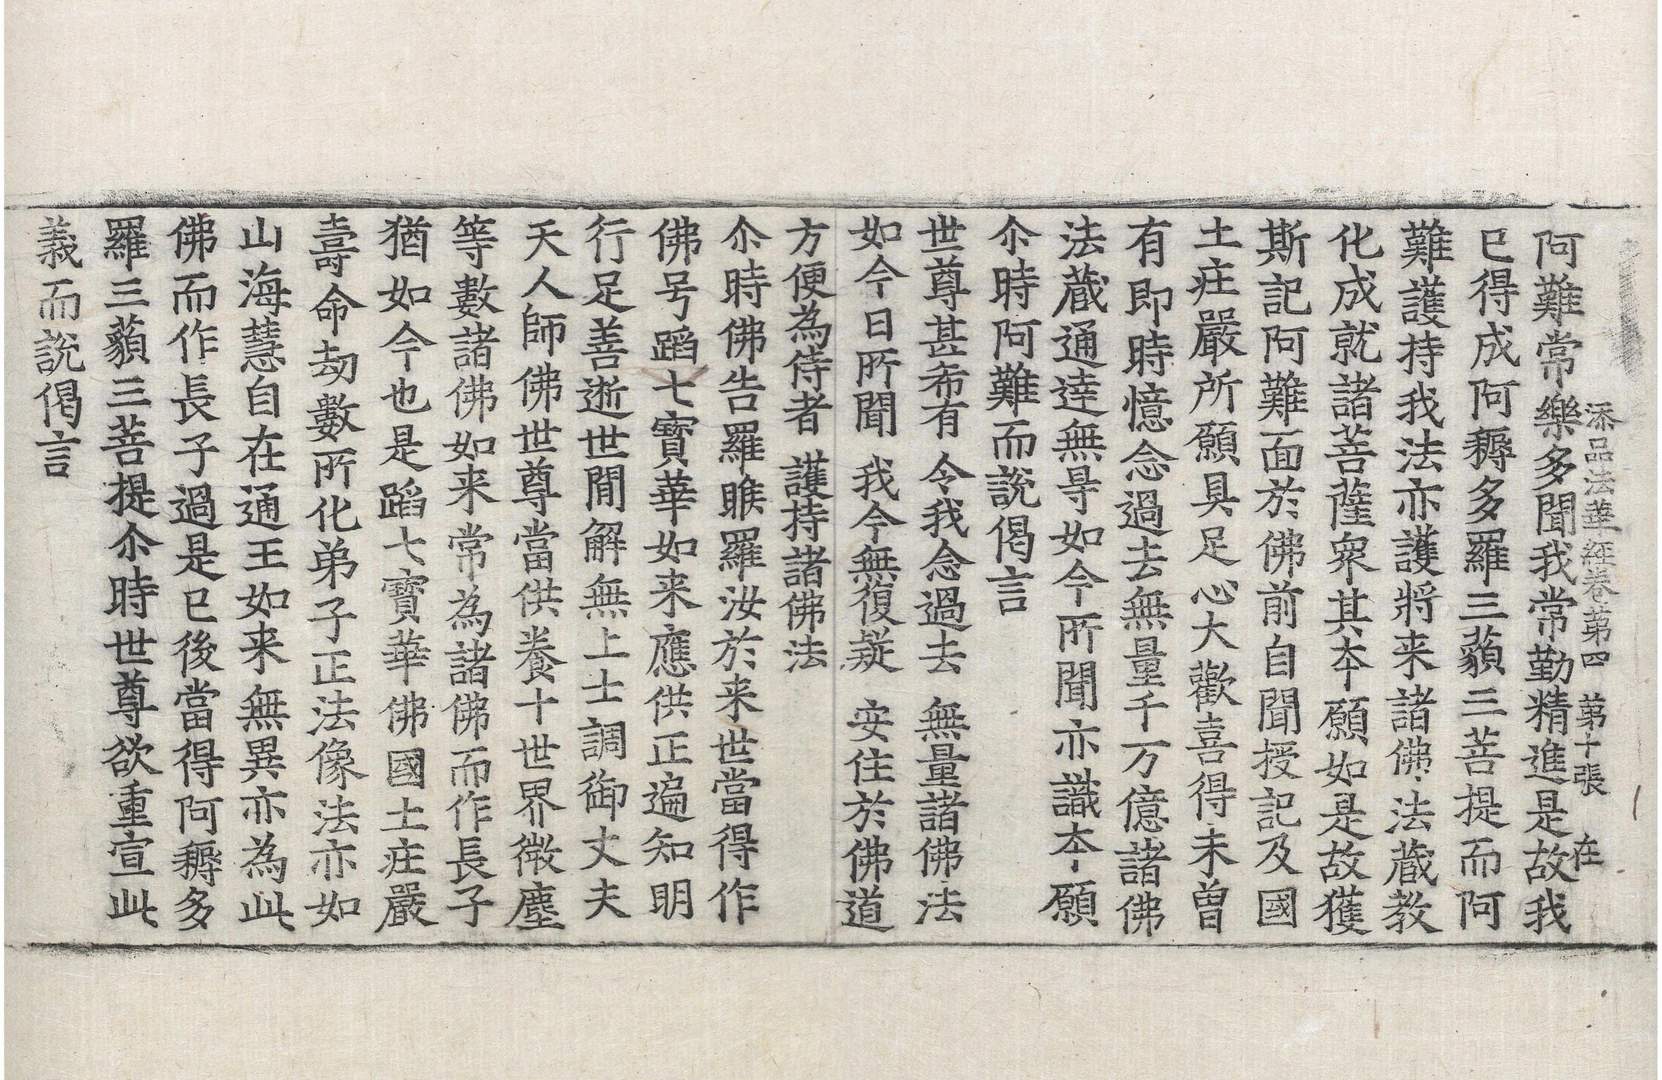 添品法華經卷第四 第十張 在
阿難常樂多聞我常勤精進是故我
已得成阿耨多羅三藐三菩提而阿
難護持我法亦護將来諸佛法蔵教
化成就諸菩薩衆其夲願如是故獲
斯記阿難面於佛前自聞授記及國
土庄嚴所願具足心大歡喜得未曾
有即時憶念過去無量千万億諸佛
法蔵通達無㝵如今所聞亦識夲願
尒時阿難而說偈言
世尊甚希有 令我念過去 無量諸佛法
如今日所聞 我今無復疑 安住於佛道
方便為侍者 護持諸佛法
尒時佛告羅睺羅汝於来世當得作
佛号蹈七寶華如来應供正遍知明
行足善逝世間解無上士調御丈夫
天人師佛世尊當供養十世界微塵
等數諸佛如来常為諸佛而作長子
猶如今也是蹈七寶華佛國土庄嚴
壽命劫數所化弟子正法像法亦如
山海慧自在通王如来無異亦為此
佛而作長子過是已後當得阿耨多
羅三藐三菩提尒時世尊欲重宣此
義而說偈言